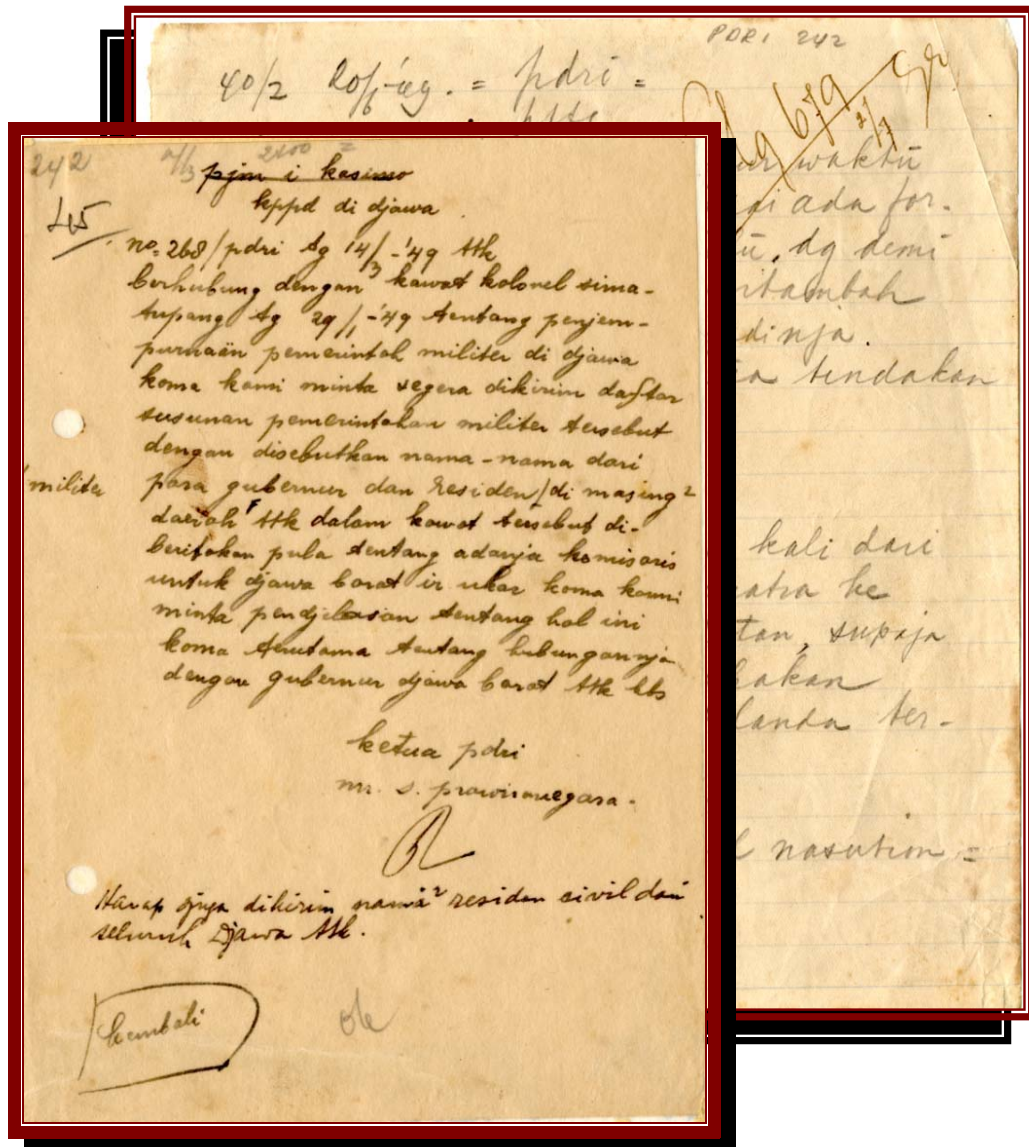 PDRI 242
40/2 20/6-'49. = pdri =
679
2/7
waktu
ada for-
dg demi
ditambah
dinja.
tindakan
kali dari
atra be
tan, supaja
bakan
landa ter-
nasution =
242
2100 =
pjm i kasimo
kppd di djawa
45
no. 268/pdri tg 14/3-'49 ttk
berhubung dengan kawat kolonel sima-
tupang tg 29/1-'49 tentang penjem-
purnaän pemerintah militer di djawa
koma kami minta segera dikirim daftar
susunan pemerintahan militer tersebut
dengan disebutkan nama-nama dari
militer
para gubernur dan residen/di masing2
daerah ttk dalam kawat tersebut di-
beritakan pula tentang adanja komisaris
untuk djawa barat ir ukar koma kami
minta pendjelasan tentang hal ini
koma terutama tentang hubungannja
dengan gubernur djawa barat ttk hbs
ketua pdri
mr. s. prawiranegara.
Harap djuga dikirim nama2 residen sivil dari
seluruh Djawa ttk.
kembali
ok